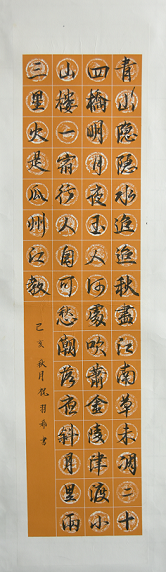 青山隐隐水迢迢秋盡江南草未凋二十
四橋明月夜玉人何處吹簫金陵津渡小
山樓一宿行人自可愁潮落夜斜月里兩
三星火是瓜州江教
己亥秋月書